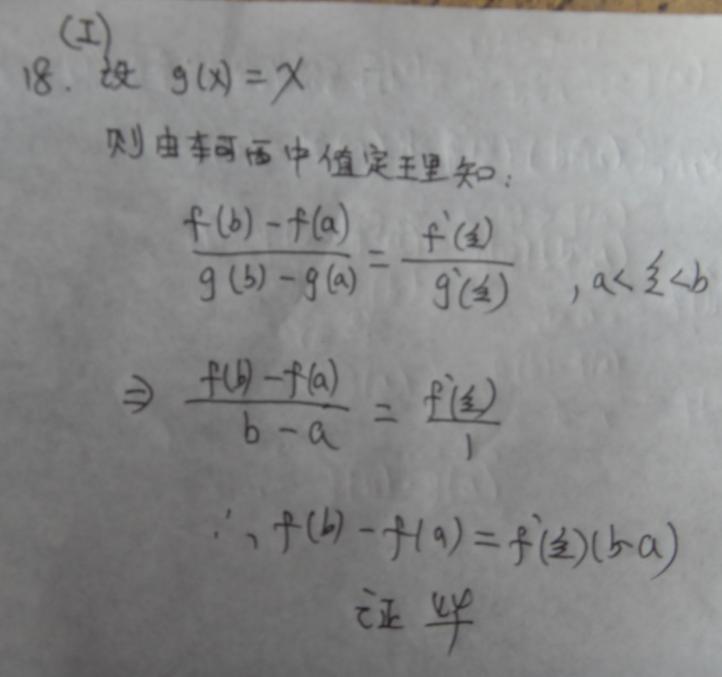 (I)
18. 设 g(x) = x
则由柯西中值定理知:
\frac{f(b)-f(a)}{g(b)-g(a)} = \frac{f'(ξ)}{g'(ξ)} , a<ξ<b
⇒ \frac{f(b)-f(a)}{b-a} = \frac{f'(ξ)}{1}
∴, f(b)-f(a)=f'(ξ)(b-a)
证毕